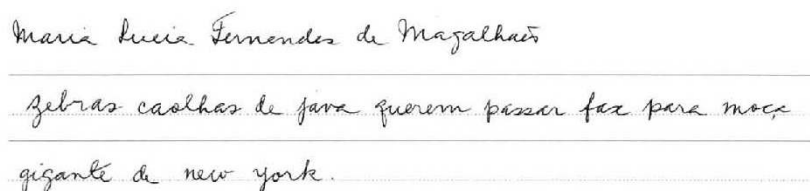 Maria Lucia Fernandes de Magalhães
zebras caolhas de java querem passar fax para moça
gigante de new york.